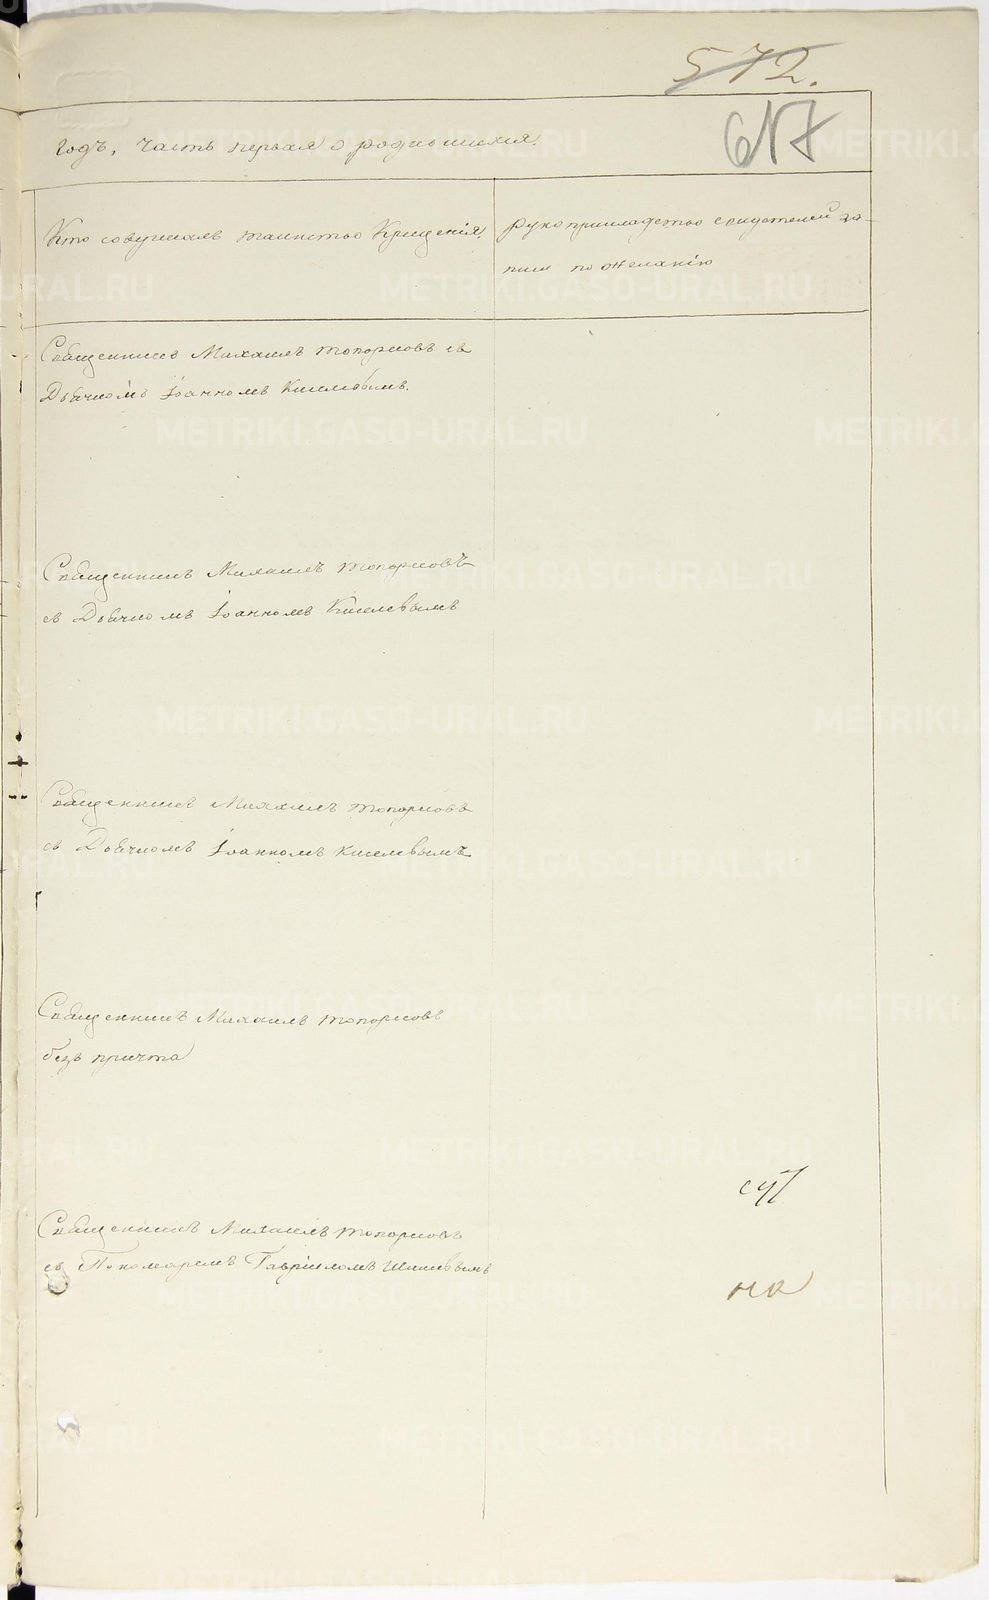 572.
617
годъ, часть первая о родившихся.
Кто совершалъ таинство Крещенія.
Рукоприкладство свидетелей за-
писи по желанію
Священникъ Михаилъ Топорковъ съ
Дьячкомъ Іоанномъ Киселевымъ.
Священникъ Михаилъ Топорковъ
съ Дьячкомъ Іоанномъ Киселевымъ
Священникъ Михаилъ Топорковъ
съ Дьячкомъ Іоанномъ Киселевымъ
Священникъ Михаилъ Топорковъ
безъ причта
Священникъ Михаилъ Топорковъ
съ Пономаремъ Гавріиломъ
на
METRIKI.GASO-URAL.RU